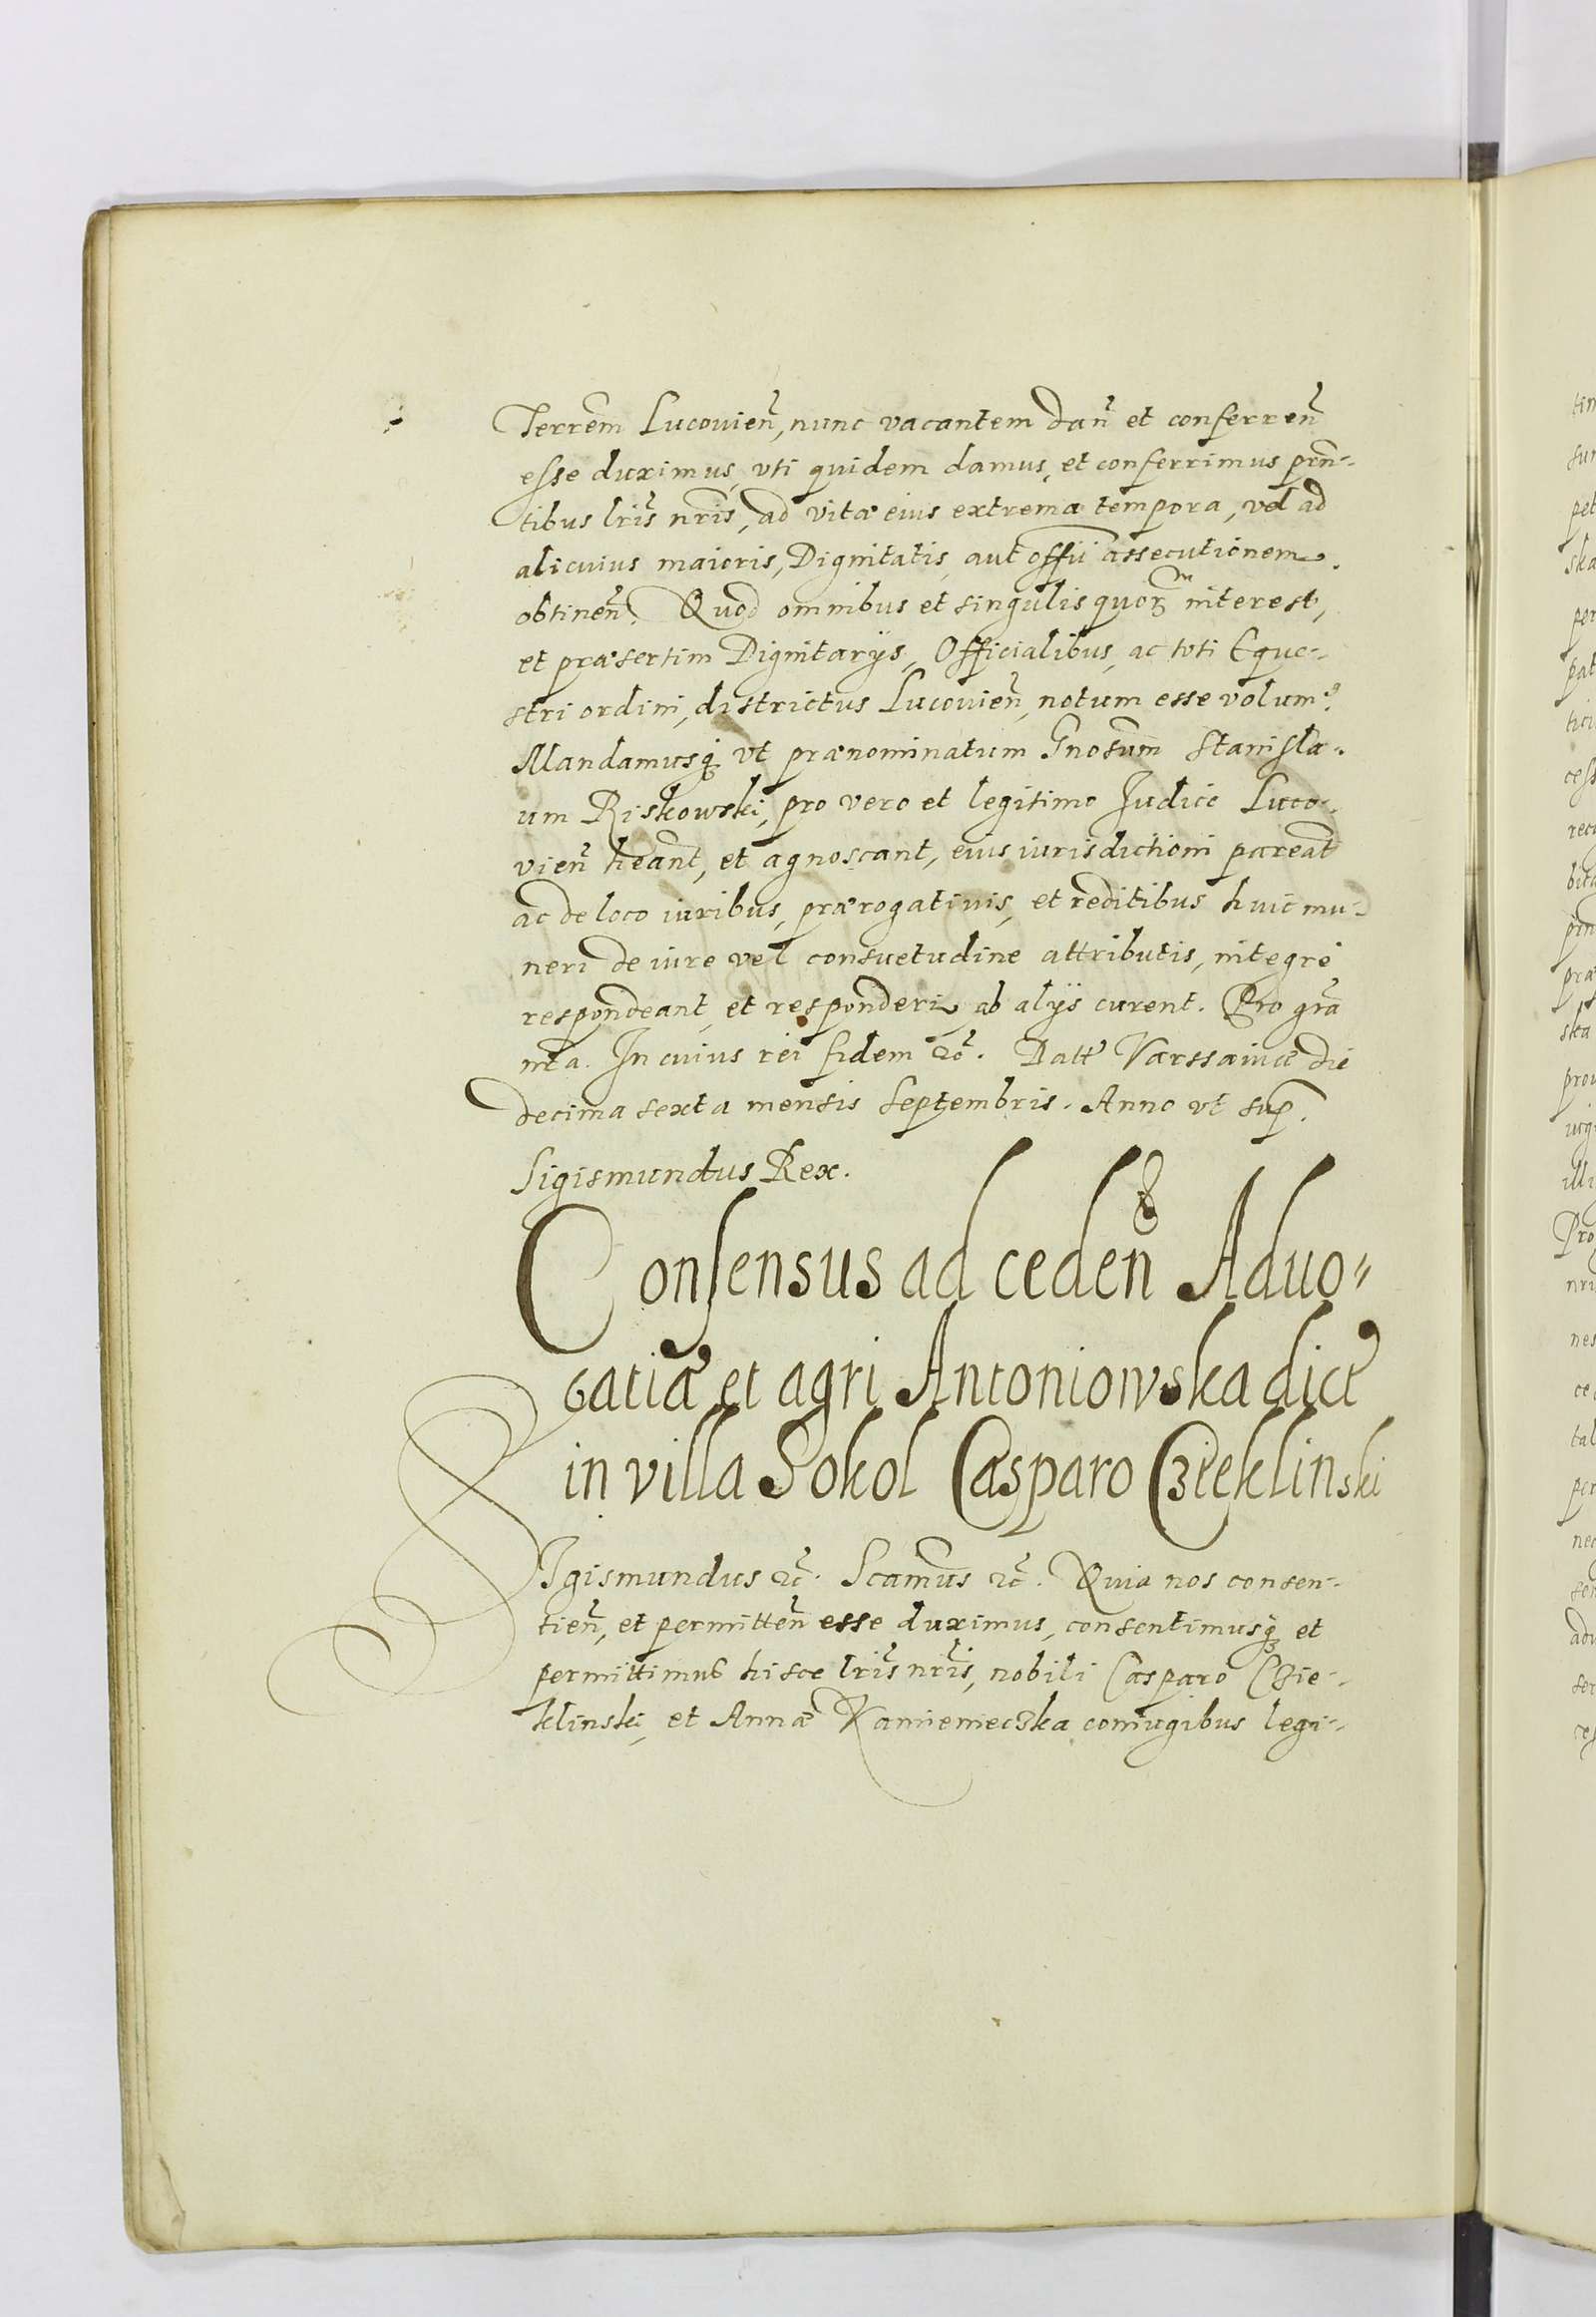 Terrem̃ Lucovień, nunc vacantem dań et conferreń
esse duximus, vti quidem damus, et conferrimus prñ-
tibus lr̃is nr̃is, ad vitæ eius extrema tempora, vel ad
alicuius maioris, Dignitatis, aut offii assecutionem.
obtineń. Quod omnibus et singulis quorꝫ interest,
et præsertim Dignitarijs, Officialibus, ac toti Eque-
stri ordini, districtus Lucovień, notum esse volum⁹.
Mandamusqꝫ vt prænominatum Gnosum̃ Stanisla-
um Riskowski, pro vero et legitimo Judice Luco-
vień heant̃, et agnoscant, eius iurisdictioni pareat̃
ac de loco iuribus, prærogativis, et reditibus huic mu-
neri de iure vel consuetudine attributis, integre
respondeant, et responderi, ab alijs curent. Pro gr̃a
nr̃a. In cuius rei fidem ꝛc̃. Datt̃ Varssaiuæ die
decima sexta mensis Septembris. Anno vt sup.
Sigismundus Rex.
Consensus ad cedeń Aduo-
catia͂ et agri Antoniowska dict̃
in villa Sokol Casparo Czieklinski
SIgismundus ꝛc̃. Scam̃us ꝛc̃. Quia nos consen-
tień, et permitteń esse duximus, consentimusqꝫ et
permittimus hisce lr̃is nr̃is, nobili Casparo Czie-
klinski, et Annæ Kamienieczka coniugibus legi-